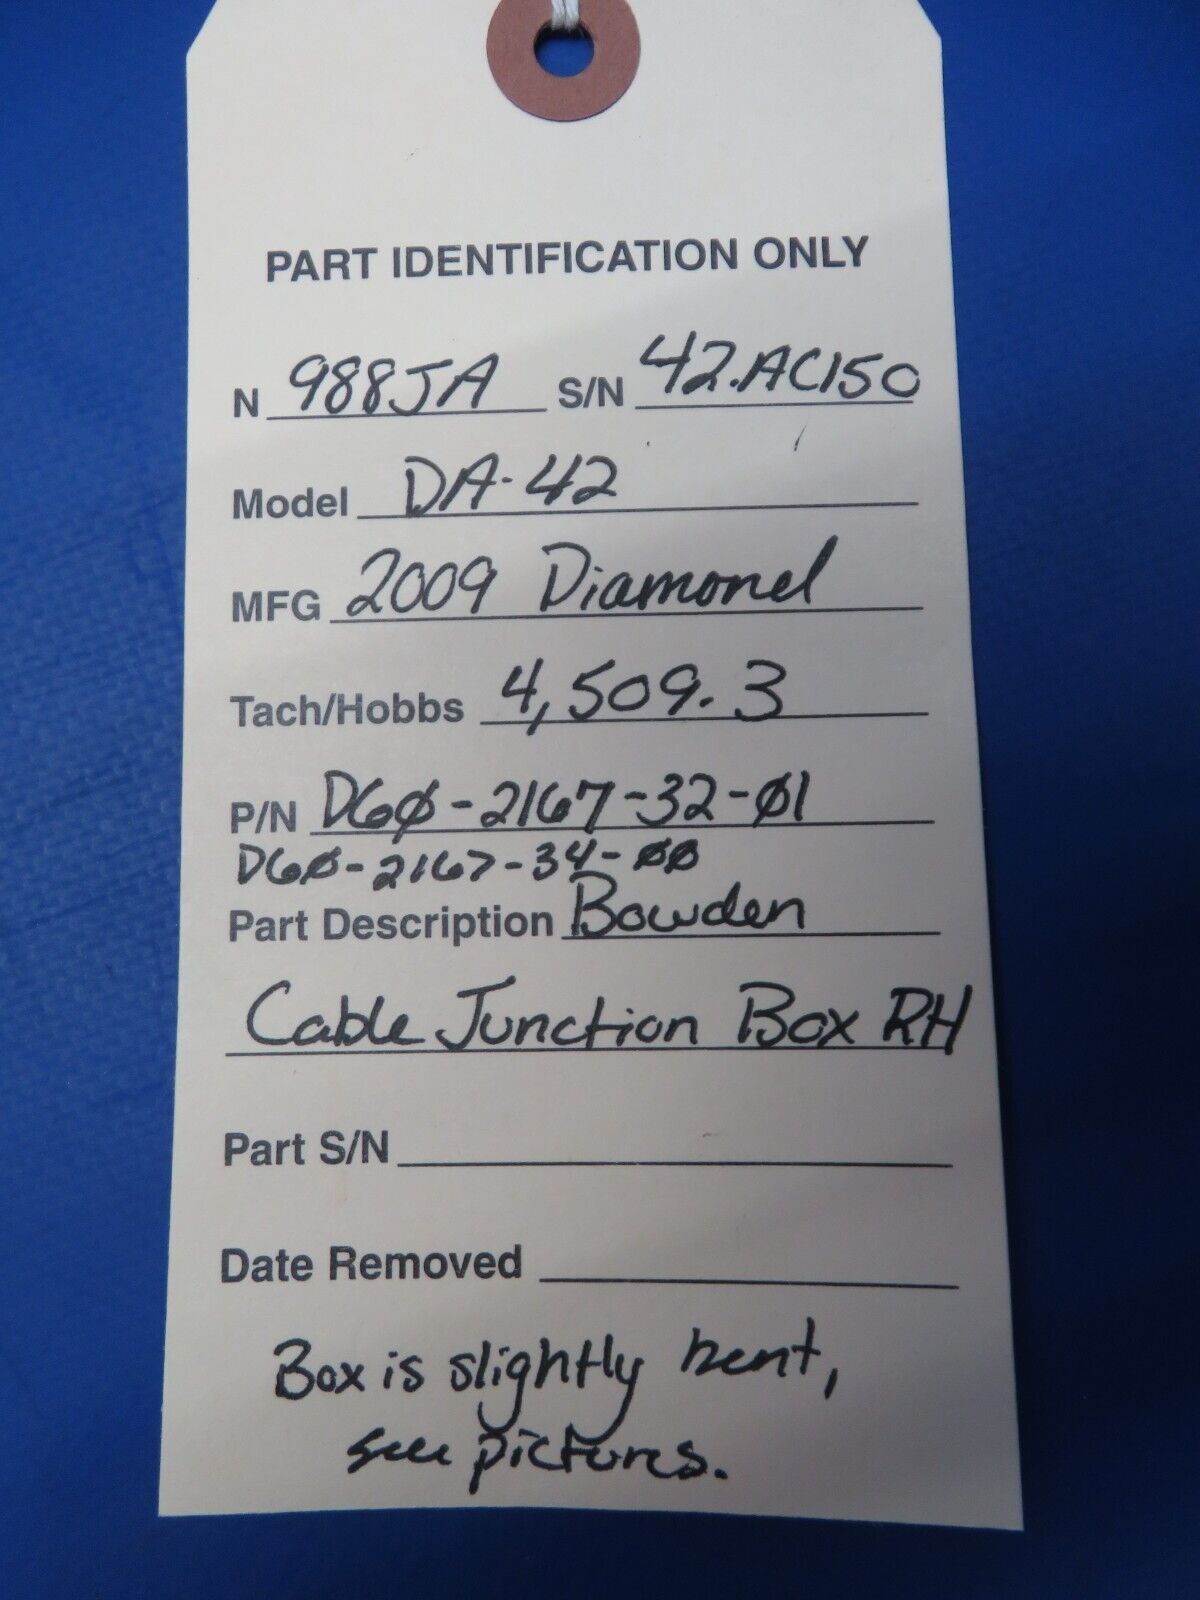 PART IDENTIFICATION ONLY
N 988JA S/N 42.AC150
Model DA-42
MFG 2009 Diamond
Tach/Hobbs 4,509.3
P/N D60-2167-32-01
D60-2167-34-00
Part Description Bowden
Cable Junction Box RH
Part S/N
Date Removed
Box is slightly bent,
see pictures.